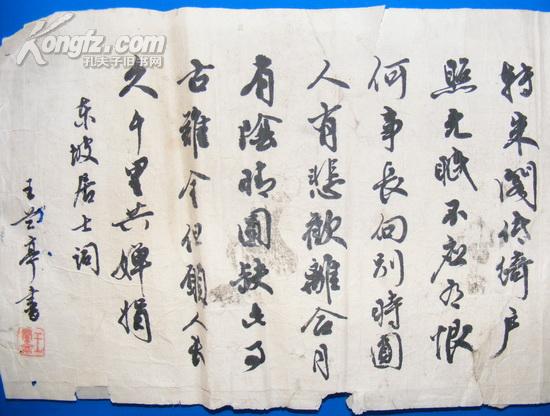 Kongfz.com
孔夫子旧书网
转朱阁低绮户
照无眠不应有恨
何事長向別時圓
人有悲歡離合月
有陰晴圓缺此事
古難全但願人長
久千里共嬋娟
东坡居士词
王亭書